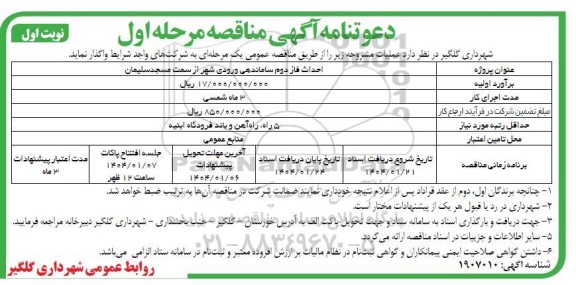 دعوتنامه آگهی مناقصه مرحله اول
نوبت اول
شهرداری گلگیر در نظر دارد عملیات مشروحه زیر را از طریق مناقصه عمومی یک مرحله‌ای به شرکت‌های واجد شرایط واگذار نماید.
عنوان پروژه احداث فاز دوم ساماندهی ورودی شهر از سمت مسجدسلیمان
برآورد اولیه ۱۷/۰۰۰/۰۰۰/۰۰۰ ریال
مدت اجرای کار ۳ ماه شمسی
مبلغ تضمین شرکت در فرآیند ارجاع کار ۸۵۰/۰۰۰/۰۰۰ ریال
حداقل رتبه مورد نیاز ۵ راه، راه‌آهن و باند فرودگاه ابنیه
محل تامین اعتبار منابع عمومی
برنامه زمانی مناقصه
تاریخ شروع دریافت اسناد ۱۴۰۴/۰۱/۲۱
تاریخ پایان دریافت اسناد ۱۴۰۴/۰۱/۲۴
آخرین مهلت تحویل پیشنهادات ۱۴۰۴/۰۱/۰۶
جلسه افتتاح پاکات ۱۴۰۴/۰۱/۰۷ ساعت ۱۲ ظهر
مدت اعتبار پیشنهادات ۳ ماه
۱- چنانچه برندگان اول، دوم از عقد قراداد پس از اعلام نتیجه خودداری نمایند ضمانت شرکت در مناقصه آن‌ها به ترتیب ضبط خواهد شد.
۲- شهرداری در رد یا قبول هر یک از پیشنهادات مختار است.
۳- جهت دریافت و بارگذاری اسناد به سامانه ستاد و جهت تحویل پاکت الف به آدرس خوزستان – گلگیر – جنب بخشداری – شهرداری گلگیر دبیرخانه مراجعه فرمایید.
۵- سایر اطلاعات و جزییات در اسناد مناقصه ارائه می‌گردد.
۶- داشتن گواهی صلاحیت ایمنی پیمانکاران و گواهی ثبت‌نام در نظام مالیات بر ارزش افزوده معتبر و ثبت‌نام در سامانه ستاد الزامی می‌باشد.
شناسه آگهی: ۱۹۰۷۰۱۰
روابط عمومی شهرداری گلگیر
۰۲۱-۸۸۳۴۹۶۷۰-۵